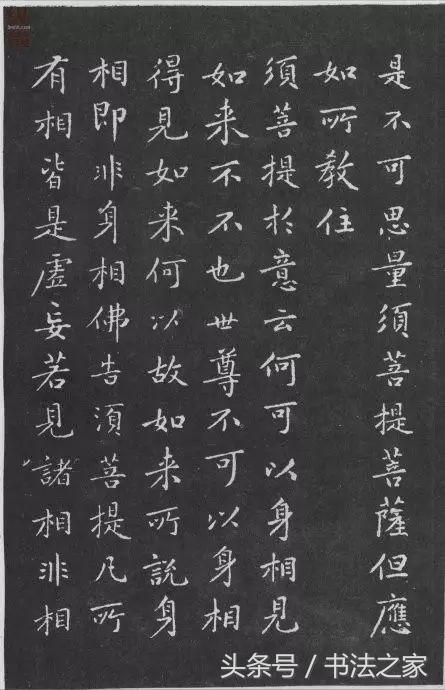 是不可思量須菩提菩薩但應
如所教住
須菩提於意云何可以身相見
如来不不也世尊不可以身相
得見如来何以故如来所說身
相即非身相佛告須菩提凡所
有相皆是虛妄若見諸相非相
头条号 / 书法之家